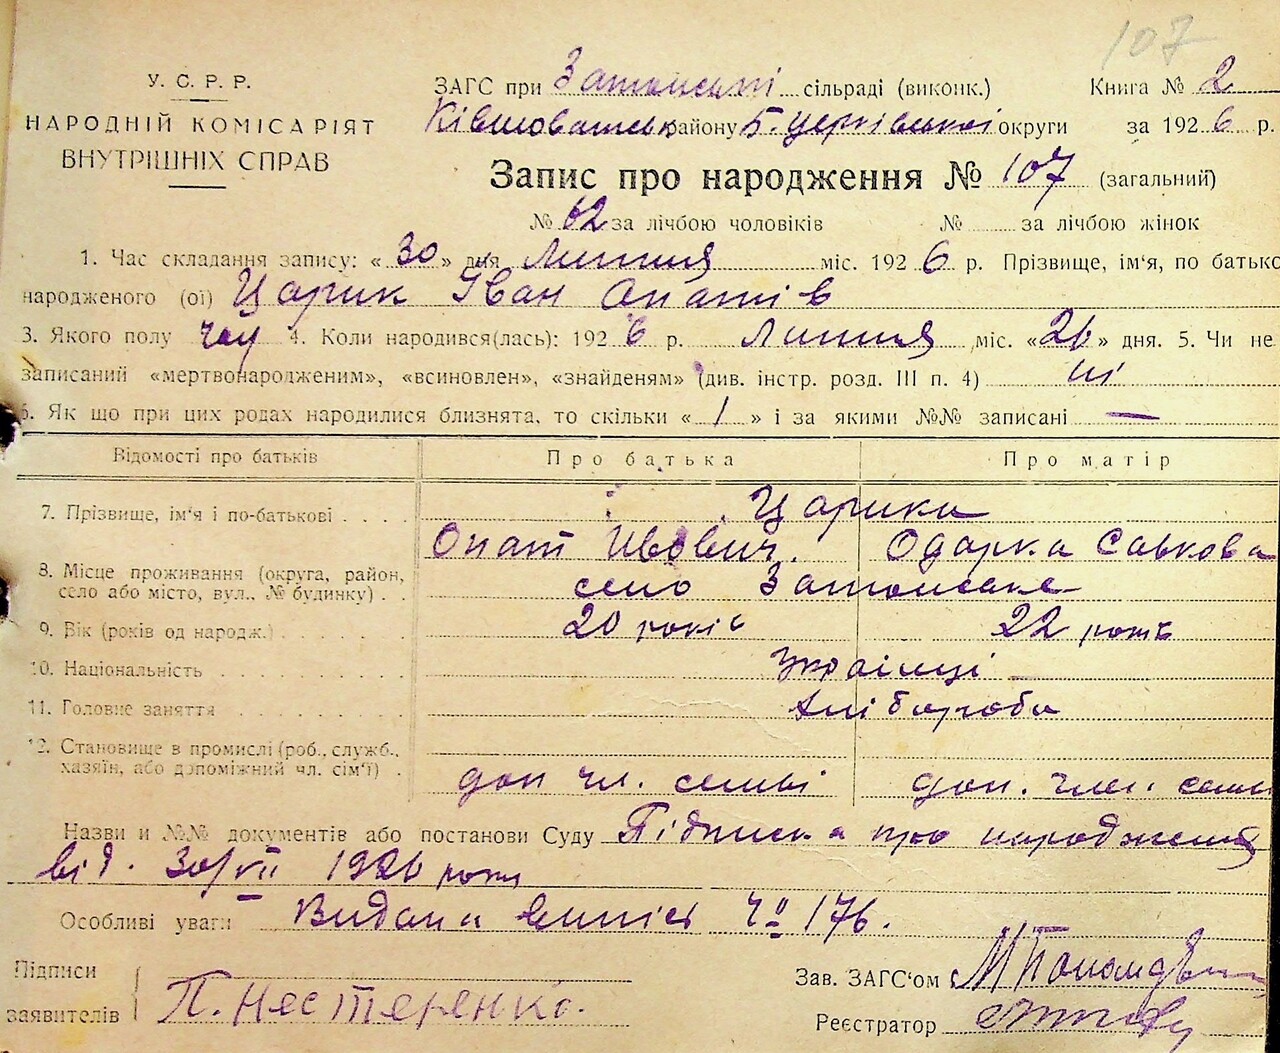 107
У. С. Р. Р.
НАРОДНІЙ КОМІСАРІЯТ
ВНУТРІШНІХ СПРАВ
ЗАГС при сільраді (виконк.) Книга № 2
району Б. Церківської округи за 1926 р.
Запис про народження № 107 (загальний)
№ 62 за лічбою чоловіків № за лічбою жінок
1. Час складання запису: «30» дня Липня міс. 1926 р. Прізвище, ім'я, по батько
народженого (ої) Царик Іван Опатів
3. Якого полу чол 4. Коли народився(лась): 1926 р. Липня міс. «26» дня. 5. Чи не
записаний «мертвонародженим», «всиновлен», «знайденям» (див. інстр. розд. III п. 4) ні
6. Як що при цих родах народилися близнята, то скільки «1» і за якими №№ записані —
Відомості про батьків Про батька Про матір
7. Прізвище, ім'я і по-батькові Царики
Опат Ивович. Одарка Савкова
8. Місце проживання (округа, район,
село або місто, вул., № будинку) село
9. Вік (років од народж.) 20 років 22 років
10. Національність Українці
11. Головне заняття Хліборобы
12. Становище в промислі (роб., служб.,
хазяїн, або допоміжний чл. сім'ї) доп чл. семьі доп. член. семи
Назви и №№ документів або постанови Суду Підписка про народження
від. 30/VII 1926 року
Особливі уваги Видан витяг № 176.
Підписи
заявителів П. Нестеренко.
Зав. ЗАГС'ом
Реєстратор